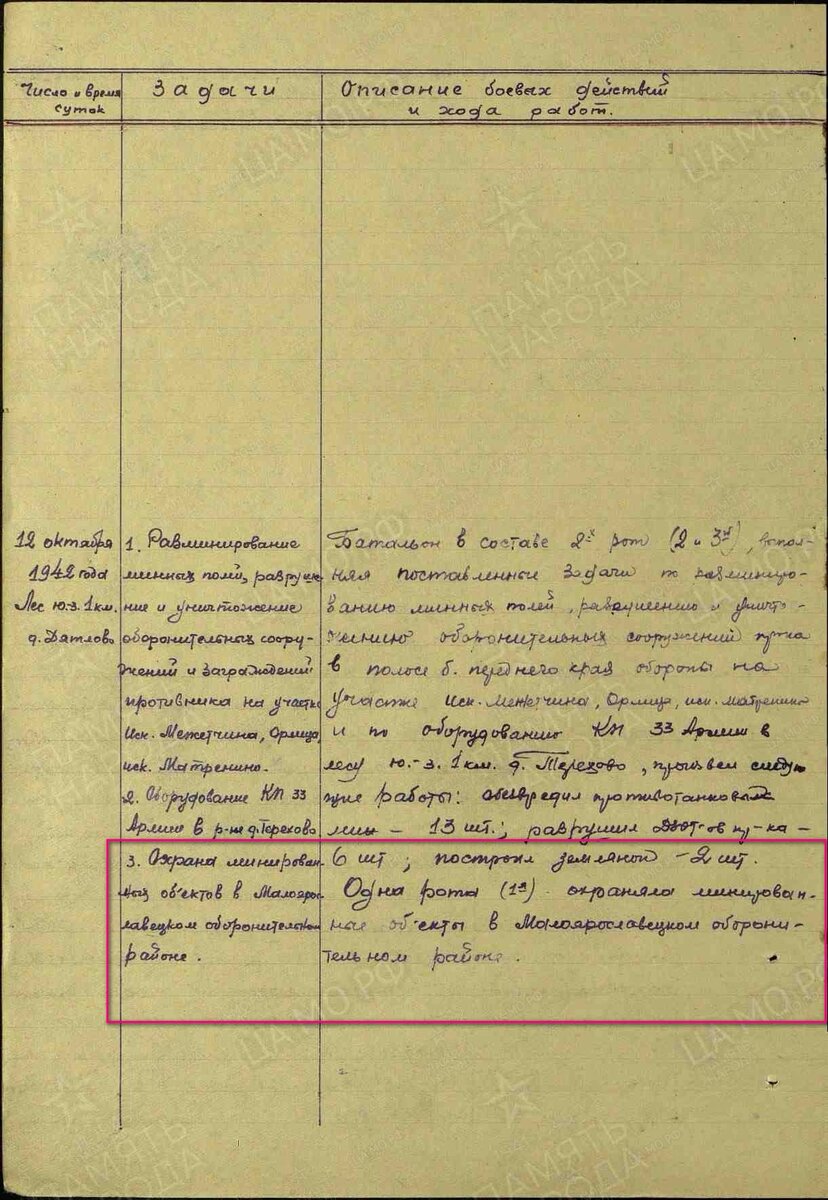 Число и время
суток
Задачи
Описание боевых действий
и хода работ.
12 октября
1942 года
Лес ю.з. 1 км.
д. Дятлово
1. Разминирование
минных полей, разруше-
ние и уничтожение
оборонительных соору-
жений и заграждений
противника на участке
Иск. Межетчина, Орлица,
иск. Матренино.
2. Оборудование КП 33
Армии в р-не д. Терехово
3. Охрана минирован-
ных об'ектов в Малояро-
славецком оборонительном
районе.
Батальон в составе 2х рот (2 и 3й), выпол-
няя поставленные задачи по разминиро-
ванию минных полей, разрушению и уничто-
жению оборонительных сооружений пр-ка
в полосе б. переднего края обороны на
участке Иск. Межетчина, Орлица, иск. Матренино
и по оборудованию КП 33 Армии в
лесу ю.-з. 1 км. д. Терехово, произвел следую-
щие работы: обезвредил противотанковых
мин - 13 шт.; разрушил ДЗОТ-ов пр-ка -
6 шт; построил землянок - 2 шт.
Одна рота (1я) охраняла минирован-
ные об'екты в Малоярославецком оборони-
тельном районе.
ЦА МО РФ
ПАМЯТЬ
НАРОДА